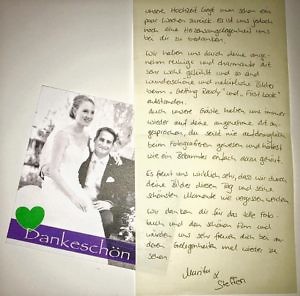 unsere Hochzeit liegt nun schon ein
paar Wochen zurück. Es ist uns jedoch
noch eine Herzensangelegenheit uns
bei dir zu bedanken.
Wir haben uns durch deine ange-
nehm ruhige und charmante Art
sehr wohl gefühlt und so sind
wunderschöne und natürliche Bilder
beim „Getting Ready" und „First Look"
entstanden.
Auch unsere Gäste haben uns immer
wieder auf deine angenehme Art an-
gesprochen, du seist nie aufdringlich
beim Fotografieren gewesen und hättest
wie ein Bekannter einfach dazu gehört.
Es freut uns wirklich sehr, dass wir durch
deine Bilder diesen Tag und seine
schönsten Momente nie vergessen werden.
Wir danken dir für das tolle Foto-
buch und den schönen Film und
würden uns sehr freuen dich bei an-
deren Gelegenheiten mal wieder zu
sehen
&
Steffen
Dankeschön